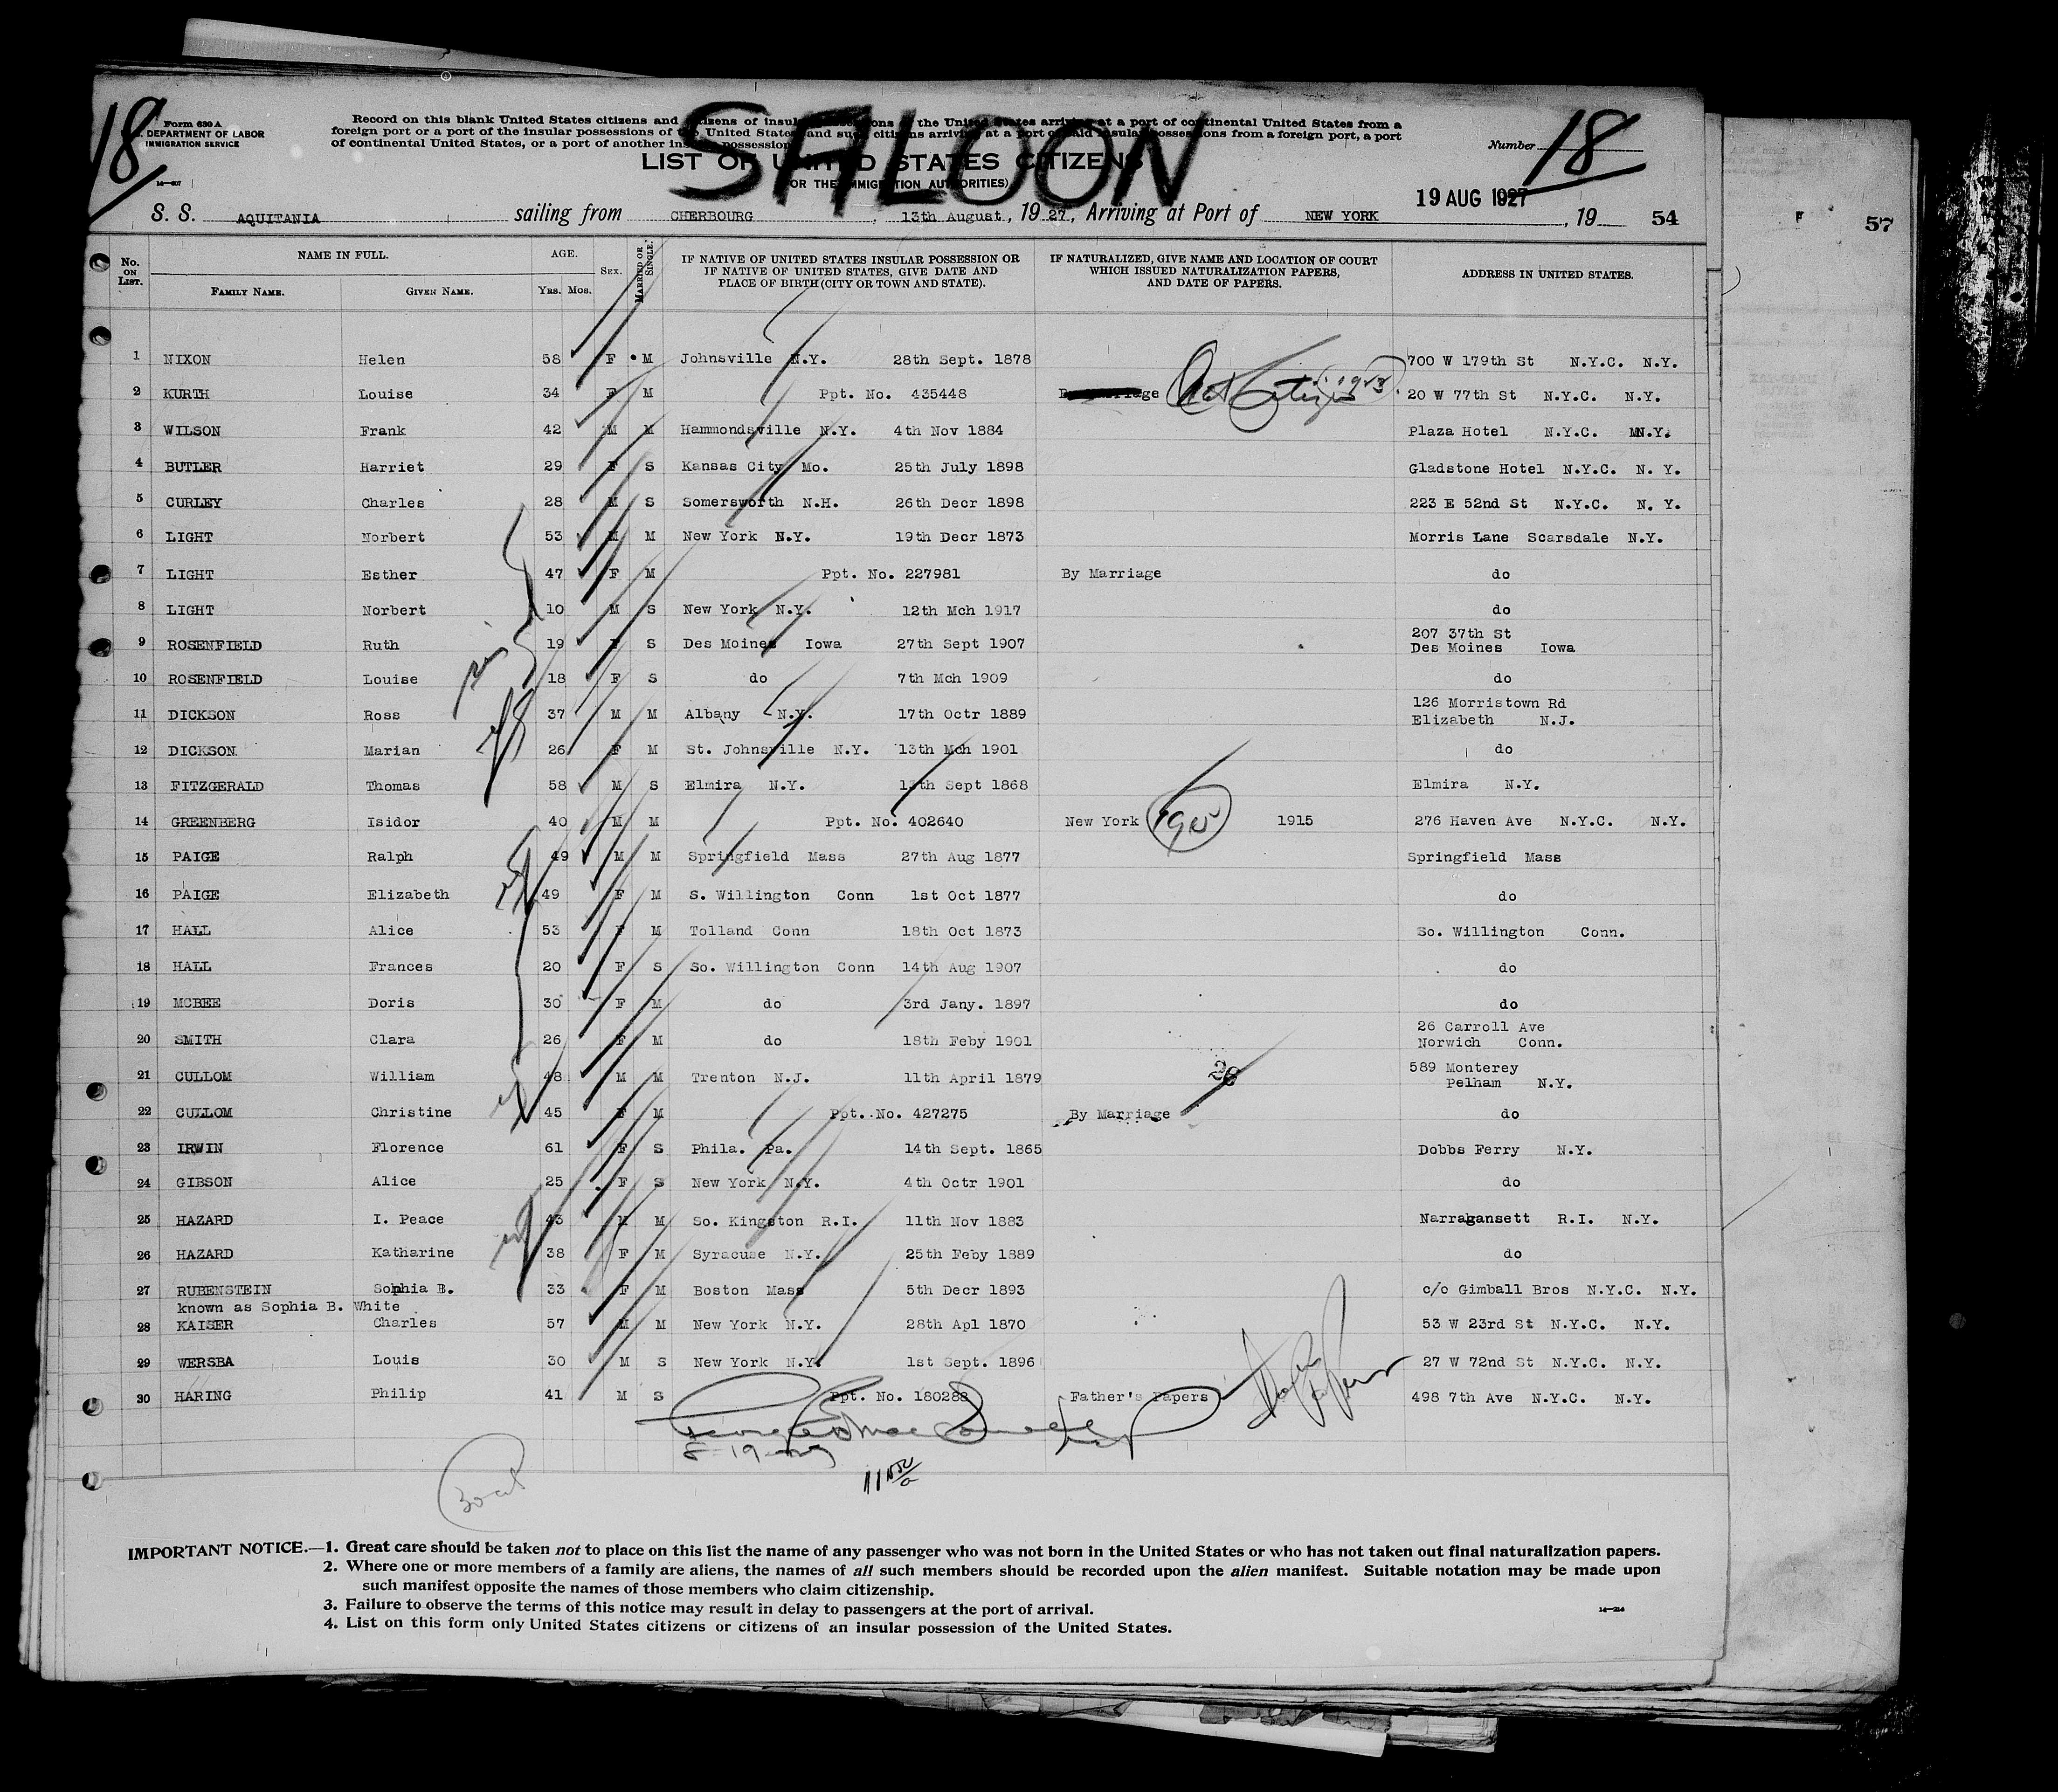 18
Form 630 A
DEPARTMENT OF LABOR
IMMIGRATION SERVICE
Record on this blank United States citizens and citizens of insular possessions of the United States arriving at a port of continental United States from a
foreign port or a port of the insular possessions of the United States, and such citizens arriving at a port of said insular possessions from a foreign port, a port
of continental United States, or a port of another insular possession
SALOON
LIST OF UNITED STATES CITIZENS
(FOR THE IMMIGRATION AUTHORITIES)
Number 18
S. S. AQUITANIA sailing from CHERBOURG, 13th August, 19 27, Arriving at Port of NEW YORK 19 AUG 1927, 19 54
F 57
No. ON LIST. NAME IN FULL. FAMILY NAME. GIVEN NAME. AGE. YRS. MOS. SEX. MARRIED OR SINGLE. IF NATIVE OF UNITED STATES INSULAR POSSESSION OR IF NATIVE OF UNITED STATES, GIVE DATE AND PLACE OF BIRTH (CITY OR TOWN AND STATE). IF NATURALIZED, GIVE NAME AND LOCATION OF COURT WHICH ISSUED NATURALIZATION PAPERS, AND DATE OF PAPERS. ADDRESS IN UNITED STATES.
1 NIXON Helen 58 F M Johnsville N.Y. 28th Sept. 1878 700 W 179th St N.Y.C. N.Y.
2 KURTH Louise 34 F M Ppt. No. 435448 20 W 77th St N.Y.C. N.Y.
3 WILSON Frank 42 M M Hammondsville N.Y. 4th Nov 1884 Plaza Hotel N.Y.C. N.Y.
4 BUTLER Harriet 29 F S Kansas City Mo. 25th July 1898 Gladstone Hotel N.Y.C. N. Y.
5 CURLEY Charles 28 M S Somersworth N.H. 26th Decr 1898 223 E 52nd St N.Y.C. N. Y.
6 LIGHT Norbert 53 M M New York N.Y. 19th Decr 1873 Morris Lane Scarsdale N.Y.
7 LIGHT Esther 47 F M Ppt. No. 227981 By Marriage do
8 LIGHT Norbert 10 M S New York N.Y. 12th Mch 1917 do
9 ROSENFIELD Ruth 19 F S Des Moines Iowa 27th Sept 1907 207 37th St
Des Moines Iowa
10 ROSENFIELD Louise 18 F S do 7th Mch 1909 do
11 DICKSON Ross 37 M M Albany N.Y. 17th Octr 1889 126 Morristown Rd
Elizabeth N.J.
12 DICKSON Marian 26 F M St. Johnsville N.Y. 13th Mch 1901 do
13 FITZGERALD Thomas 58 M S Elmira N.Y. Sept 1868 Elmira N.Y.
14 GREENBERG Isidor 40 M M Ppt. No. 402640 New York 1915 276 Haven Ave N.Y.C. N.Y.
15 PAIGE Ralph 49 M M Springfield Mass 27th Aug 1877 Springfield Mass
16 PAIGE Elizabeth 49 F M S. Willington Conn 1st Oct 1877 do
17 HALL Alice 53 F M Tolland Conn 18th Oct 1873 So. Willington Conn.
18 HALL Frances 20 F S So. Willington Conn 14th Aug 1907 do
19 MCBEE Doris 30 F M do 3rd Jany. 1897 do
20 SMITH Clara 26 F M do 18th Feby 1901 26 Carroll Ave
Norwich Conn.
21 CULLOM William 48 M M Trenton N.J. 11th April 1879 589 Monterey
Pelham N.Y.
22 CULLOM Christine 45 F M Ppt. No. 427275 By Marriage do
23 IRWIN Florence 61 F S Phila. Pa. 14th Sept. 1865 Dobbs Ferry N.Y.
24 GIBSON Alice 25 F S New York N.Y. 4th Octr 1901 do
25 HAZARD I. Peace 43 M M So. Kingston R.I. 11th Nov 1883 Narragansett R.I. N.Y.
26 HAZARD Katharine 38 F M Syracuse N.Y. 25th Feby 1889 do
27 RUBENSTEIN Sophia B. 33 F M Boston Mass 5th Decr 1893 c/o Gimball Bros N.Y.C. N.Y.
known as Sophia B. White
28 KAISER Charles 57 M M New York N.Y. 28th Apl 1870 53 W 23rd St N.Y.C. N.Y.
29 WERSBA Louis 30 M S New York N.Y. 1st Sept. 1896 27 W 72nd St N.Y.C. N.Y.
30 HARING Philip 41 M S Ppt. No. 180288 Father's Papers 498 7th Ave N.Y.C. N.Y.
IMPORTANT NOTICE.—1. Great care should be taken not to place on this list the name of any passenger who was not born in the United States or who has not taken out final naturalization papers.
2. Where one or more members of a family are aliens, the names of all such members should be recorded upon the alien manifest. Suitable notation may be made upon
such manifest opposite the names of those members who claim citizenship.
3. Failure to observe the terms of this notice may result in delay to passengers at the port of arrival.
4. List on this form only United States citizens or citizens of an insular possession of the United States.